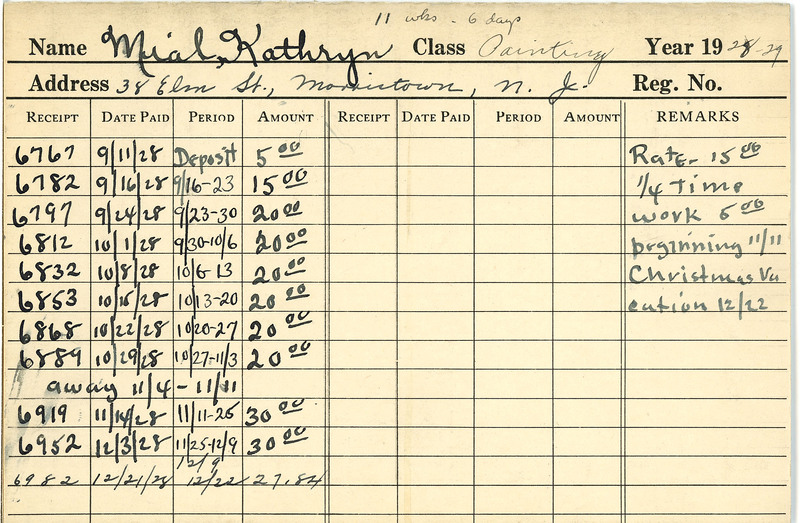 11 wks - 6 days
Name Mial, Kathryn Class Painting Year 1928-29
Address 38 Elm St., Morristown, N. J. Reg. No.
RECEIPT DATE PAID PERIOD AMOUNT RECEIPT DATE PAID PERIOD AMOUNT REMARKS
6767 9/11/28 Deposit 5 00 Rate - 15 00
6782 9/16/28 9/16-23 15 00 1/4 time
6797 9/24/28 9/23-30 20 00 work 5 00
6812 10/1/28 9/30-10/6 20 00 beginning 11/11
6832 10/8/28 10/6-13 20 00 Christmas Va
6853 10/15/28 10/13-20 20 00 cation 12/22
6868 10/22/28 10/20-27 20 00
6889 10/29/28 10/27-11/3 20 00
away 11/4 - 11/11
6919 11/14/28 11/11-25 30 00
6952 12/3/28 11/25-12/9 30 00
12/9
6982 12/21/28 12/22 27.84